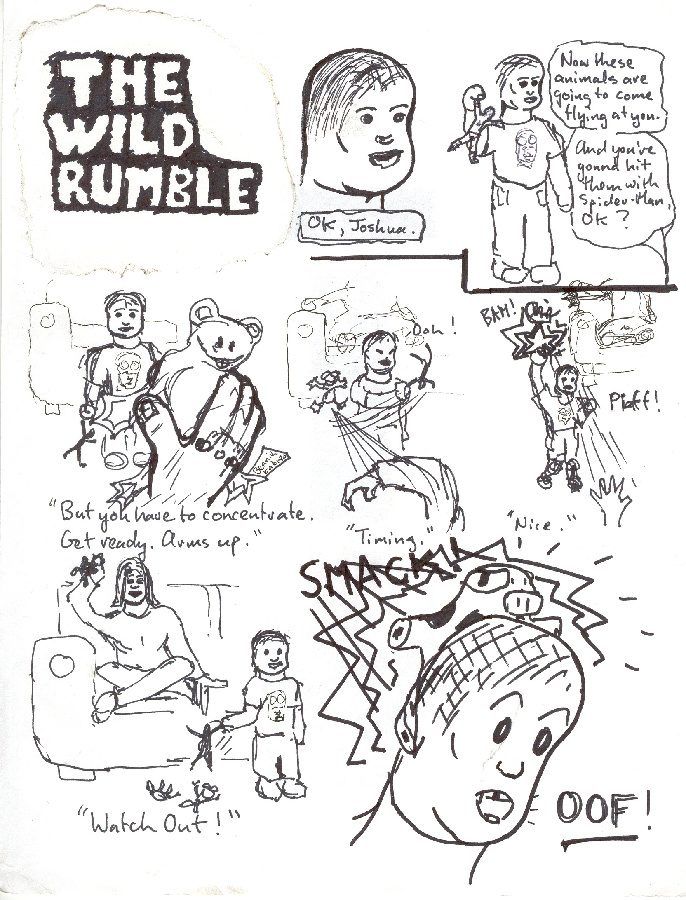 THE
WILD
RUMBLE
OK, Joshua.
Now these
animals are
going to come
flying at you.
And you've
gonna hit
them with
Spider-Man,
OK?
"But you have to concentrate.
Get ready. Arms up."
Ooh!
"Timing."
BAM!
Piaff!
"Nice."
"Watch Out!"
SMACK
OOF!